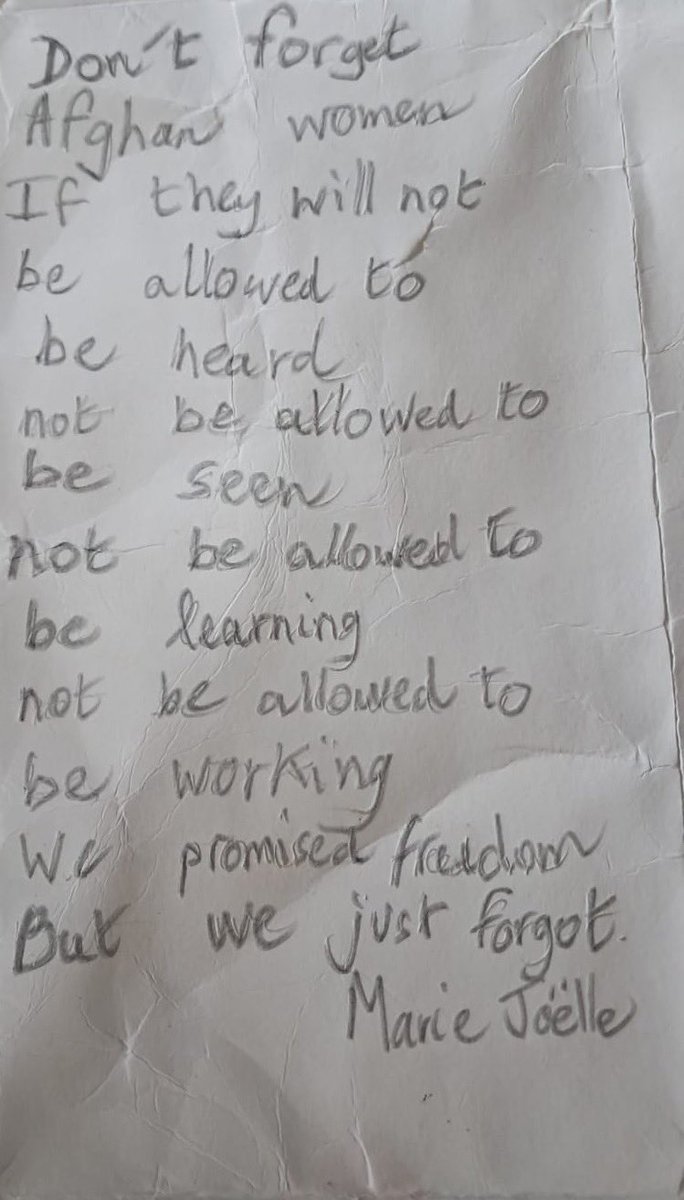 Don't forget
Afghan women
If they will not
be allowed to
be heard
not be allowed to
be seen
not be allowed to
be learning
not be allowed to
be working
We promised freedom
But we just forgot.
Marie Joëlle